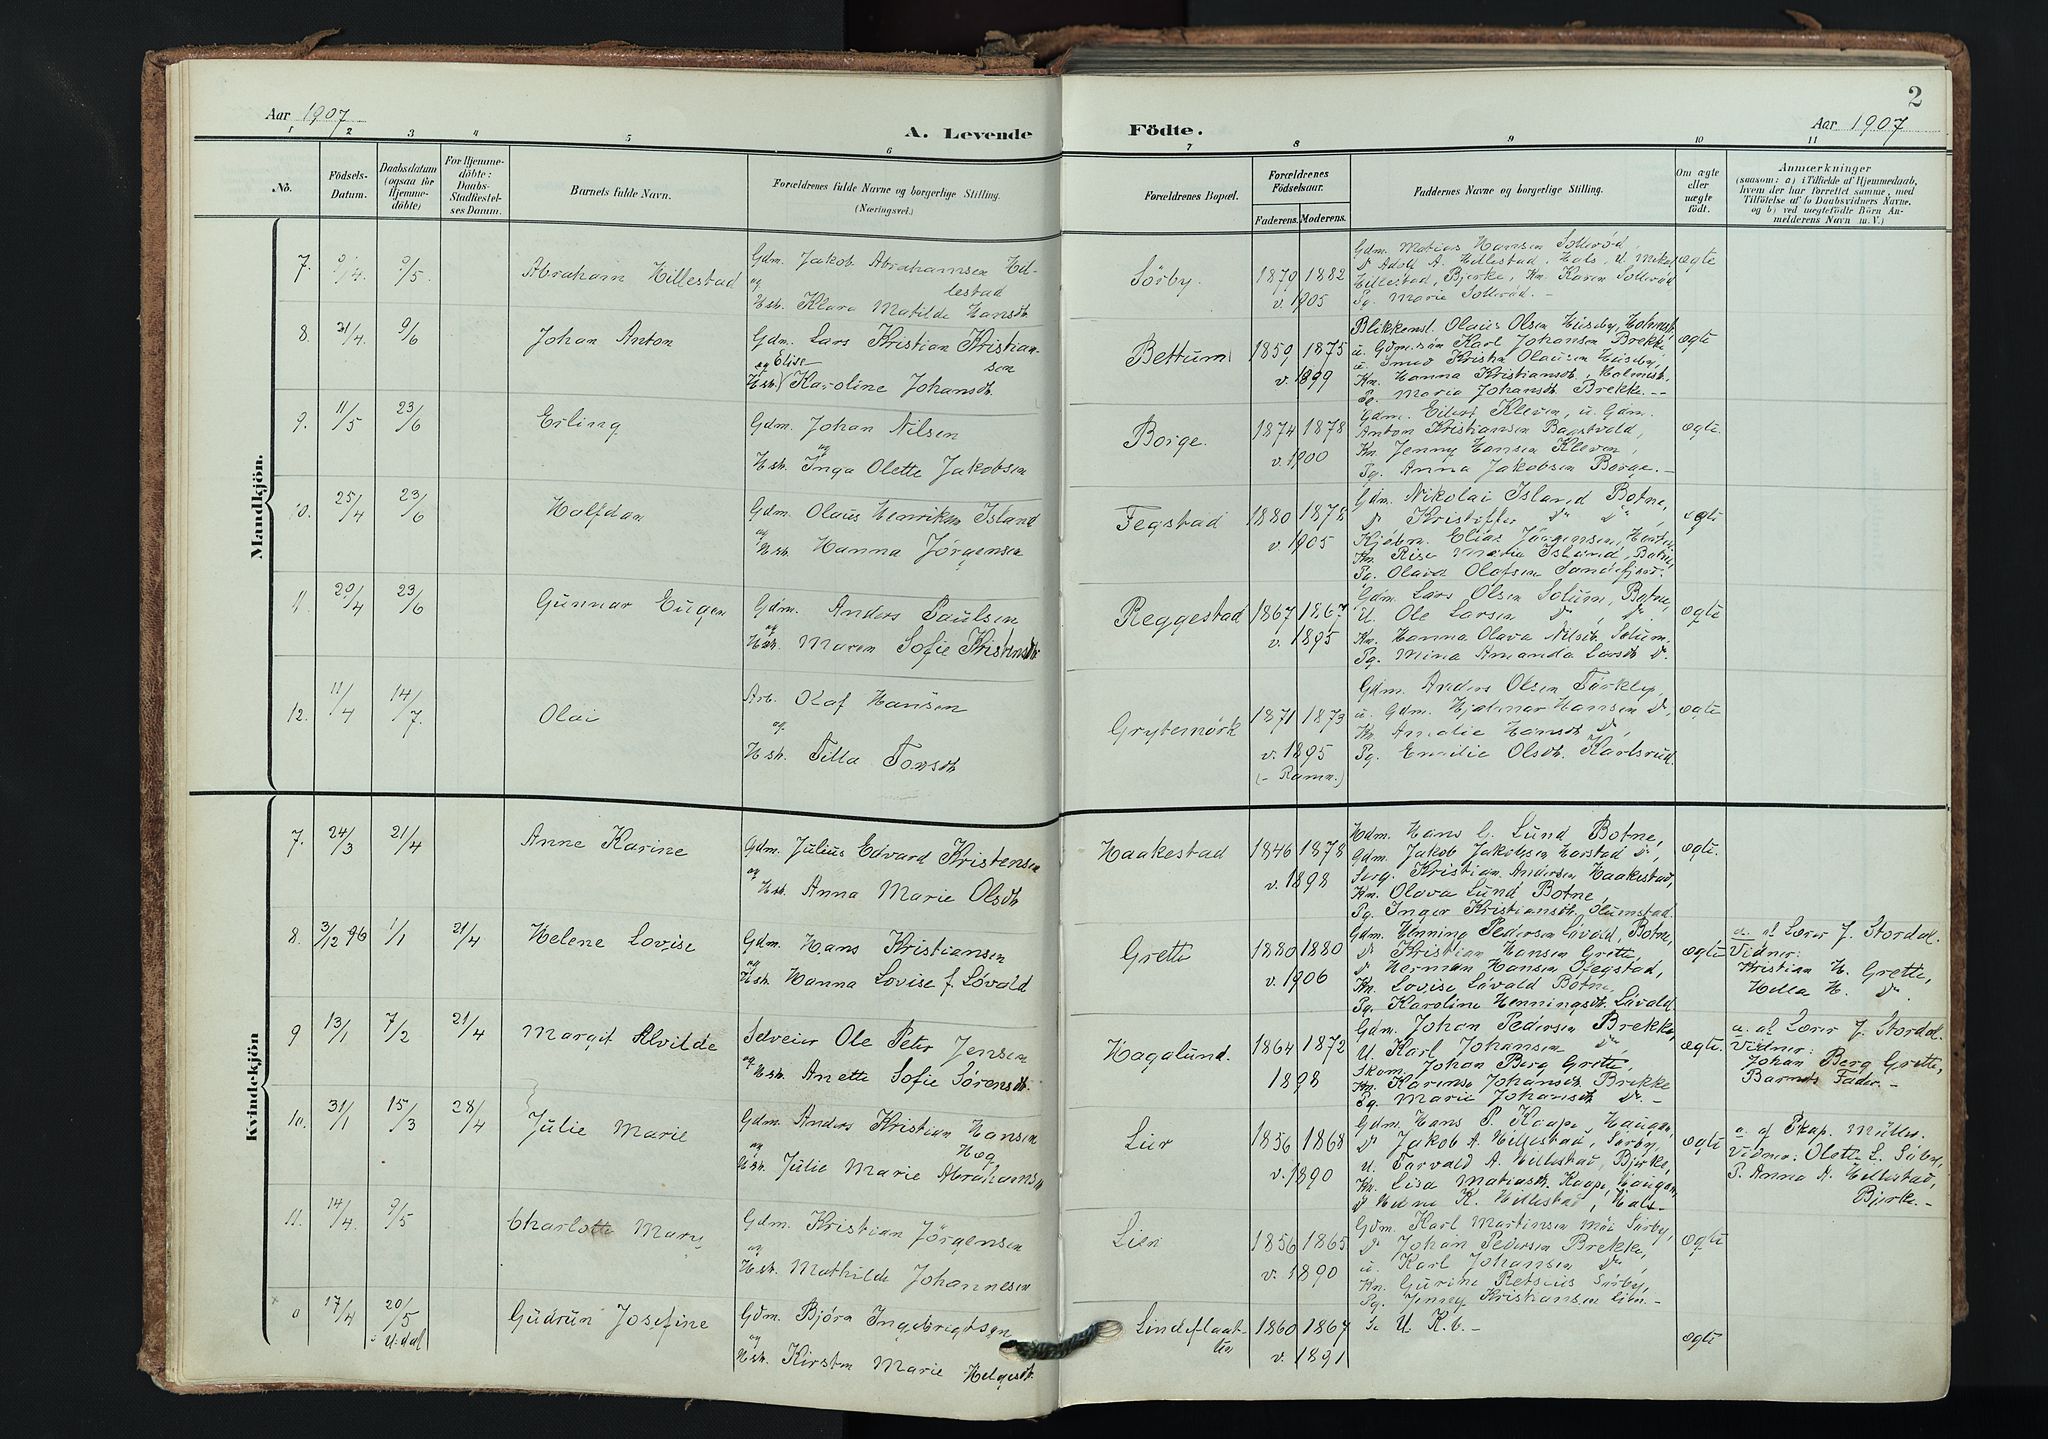 Aar 1907
A. Levende
Födte.
2
Aar 1907
1 2 3 4 5 6 7 8 9 10 11
No.
Födsels-Datum.
Daabsdatum (ogsaa for Hjemme-döbte)
For Hjemme-döbte: Daabs-Stadfæstel-ses Datum.
Barnets fulde Navn.
Forældrenes fulde Navne og borgerlige Stilling.
(Næringsvei.)
Forældrenes Bopæl.
Forældrenes Födselsaar.
Faderens.
Moderens.
Faddernes Navne og borgerlige Stilling.
Om ægte eller uægte födt.
Anmærkninger
(saasom: a) i Tilfælde af Hjemmedaab,
hvem der har forrettet samme, med
Tilföielse af to Daabsvidners Navne.
og b) ved uegtefödte Börn An-
melderens Navn m. V.)
Mandkjön.
7. 9/4. 9/5. Abraham Hillestad
Gdm. Jakob Abrahamsen Hil-
lestad
og
Hsk. Klara Matilde Hansdt.
Sørby. 1879 1882
v. 1905
Gdm. Matias Hansen Sollerød,
Dº Adolf A. Hillestad, Hals, U.
Hillestad, Bjerke, Kn. Karen Sollerød
Pg. Marie Sollerød. -
ægte
8. 21/4. 9/6 Johan Anton
Gdm. Lars Kristian Kristian-
sen
og Elise
Hsk. Karoline Johansdt.
Bettum 1859 1875
v. 1899
Blikkensl. Olaus Olsen Huseby, Holmst.
u. Gdm.søn Karl Johansen Brekke
u. Smed Kristen Olausen Huseby,
Kn. Hanna Kristiansdt., Holmest.
Pg. Maria Johansdt. Brekke. -
ægte
9. 11/5 23/6 Erling
Gdm. Johan Nilsen
og
Hsk. Inga Olette Jakobsen
Borge. 1874 1878
v. 1900
Gdm. Eilert Kleven, u. Gdm.
Anton Kristiansen Bagstvold,
Kn. Jenny Hansen Kleven,
Pg. Anna Jakobsen Borge. -
ægte.
10. 25/4 23/6 Halfdan
Gdm. Olaus Henriksen Island
og
Hsk. Hanna Jørgensen
Fegstad 1880 1878
v. 1905
Gdm. Nikolai Island Botne,
Dº Kristoffer Dº Dº,
Kjøbm. Elias Jørgensen,
Kn. Rise Marta Island, Botne,
Pg. Olava Olafsen Sandefjord.
ægte
11. 20/4 23/6 Gunnar Eugen
Gdm. Anders Paulsen
og
Hsk. Maren Sofie Kristensdt.
Reggestad 1867 1867
v. 1895
Gdm. Lars Olsen Solum, Botne,
U. Ole Larsen Dº, Dº
Kn. Hanna Olava Nilsdt. Solum.
Pg. Mina Amanda Larsdt. Dº.
ægte
12. 11/4 14/7. Olai
Arb. Olaf Hansen
og
Hsk. Tilla Torsdt.
Grytemørk 1871 1873
v. 1895
(- Ramn.)
Gdm. Anders Olsen Tørklep,
u. Gdm. Hjalmar Hansen Dº,
Kn. Amalie Hansdt. Dº
Pg. Emilie Olsdt. Karlsrud.
ægte
Kvindekjön
7. 24/3 21/4 Anne Karine
Gdm. Julius Edvard Kristensen
og
Hsk. Anna Marie Olsdt.
Haakestad 1846 1878
v. 1898
Gdm. Hans C. Lund Botne,
Gdm. Jakob Jakobsen Harstad Dº,
Serg. Kristian Andersen Haakestad,
Kn. Olava Lund Botne,
Pg. Inger Kristiansdt.
ægte.
8. 3/12 96 1/1 21/4 Helene Lovise
Gdm. Hans Kristiansen
og
Hsk. Hanna Lovise f. Løvald
Grette 1880 1880
v. 1906
Gdm. Henning Pedersen Løvald, Botne,
Dº Kristian Hansen Grette,
Dº Herman Hansen Øfegstad,
Kn. Lovise Løvald Botne,
Pg. Karoline Henningsdt. Løvald
ægte
a. af Lærer J. Stordal.
Vidner:
Kristian H. Grette,
Hella H. Dº.
9 13/1 7/2 21/4 Margit Alvilde
Selveier Ole Peter Jensen
og
Hsk. Anette Sofie Sørensdt.
Hagalund. 1864 1872
1898
Gdm. Johan Pedersen Brekke,
U. Karl Johansen Dº,
Skom. Johan Berg Grette,
Kn. Karense Johansdt. Brekke
Pg. Marie Johansdt. Dº. -
ægte.
a. af Lærer J. Stordal.
Vidner:
Johan Berg Grette,
Barnets Fader. -
10. 31/1 15/3 28/4 Julie Marie
Gdm. Anders Kristian Hansen
Høg
og
Hsk. Julie Marie Abrahamsen
Lier 1856 1868
v. 1890
Gdm. Hans P. Kaape, Haugan,
Dº Jakob A. Hillestad, Sørby,
U. Torvald A. Hillestad, Bjerke,
Kn. Lisa Matiasdt. Kaape, Haugan,
Dº K. Hillestad, Hals -
ægte
a. af Ekap. Müller.
Vidner: Olette L. Sørby,
P. Anna A. Hillestad,
Bjerke. -
11. 14/4. 9/5 Charlotte Mary
Gdm. Kristian Jørgensen
og
Hsk. Mathilde Johannesen
Lien 1856 1865
v. 1890
Gdm. Karl Martinsen Moe Sørby,
Dº Johan Pedersen Brekke,
u. Karl Johansen Dº,
Kn. Gurine Retsius Sørby,
Pg. Jenny Kristiansen Lien. -
ægte
0 17/4 20/5 Gudrun Josefine
i Udal
Gdm. Bjørn Ingebrigtsen
og
Hsk. Kirsten Marie Helgesdt.
Lindeflaat-
ten 1860 1867
v. 1891
Se U. K.b. -
ægte